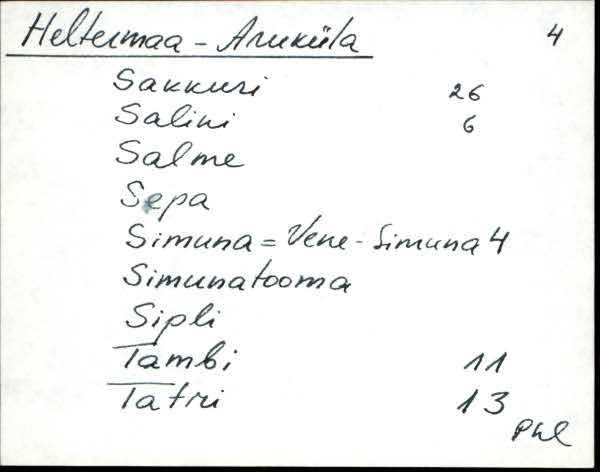 Heltermaa - Aruküla 4
Sakkuri 26
Salini 6
Salme
Sepa
Simuna = Vene - Simuna 4
Simunatooma
Sipli
Tambi 11
Tatri 13
Phl